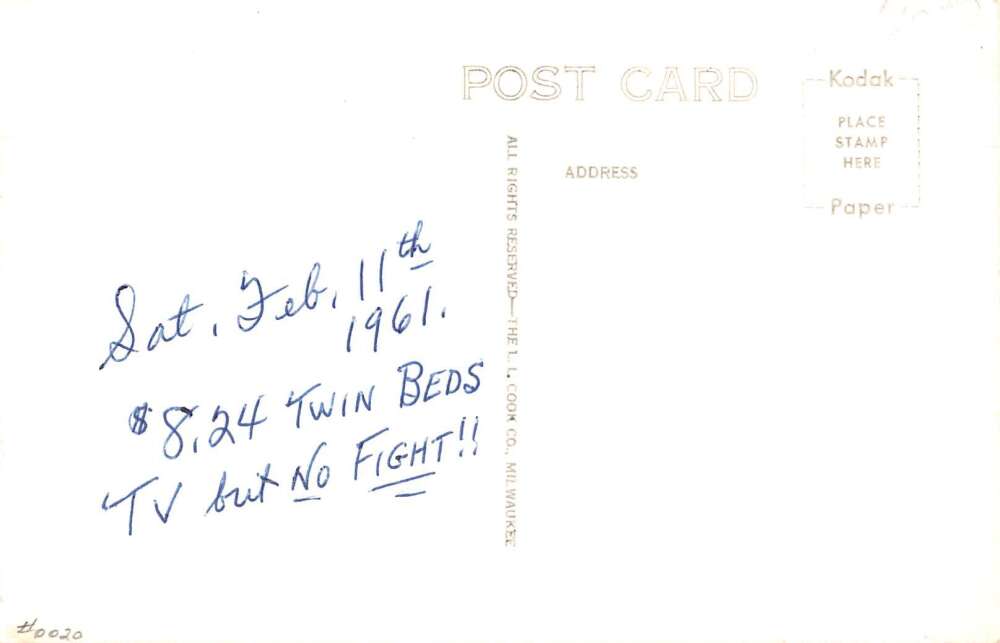 POST CARD
Kodak
PLACE
STAMP
HERE
Paper
ADDRESS
ALL RIGHTS RESERVED—THE L. L. COOK CO., MILWAUKEE
Sat. Feb. 11th
1961.
$8.24 TWIN BEDS
TV but NO FIGHT!!
#0020